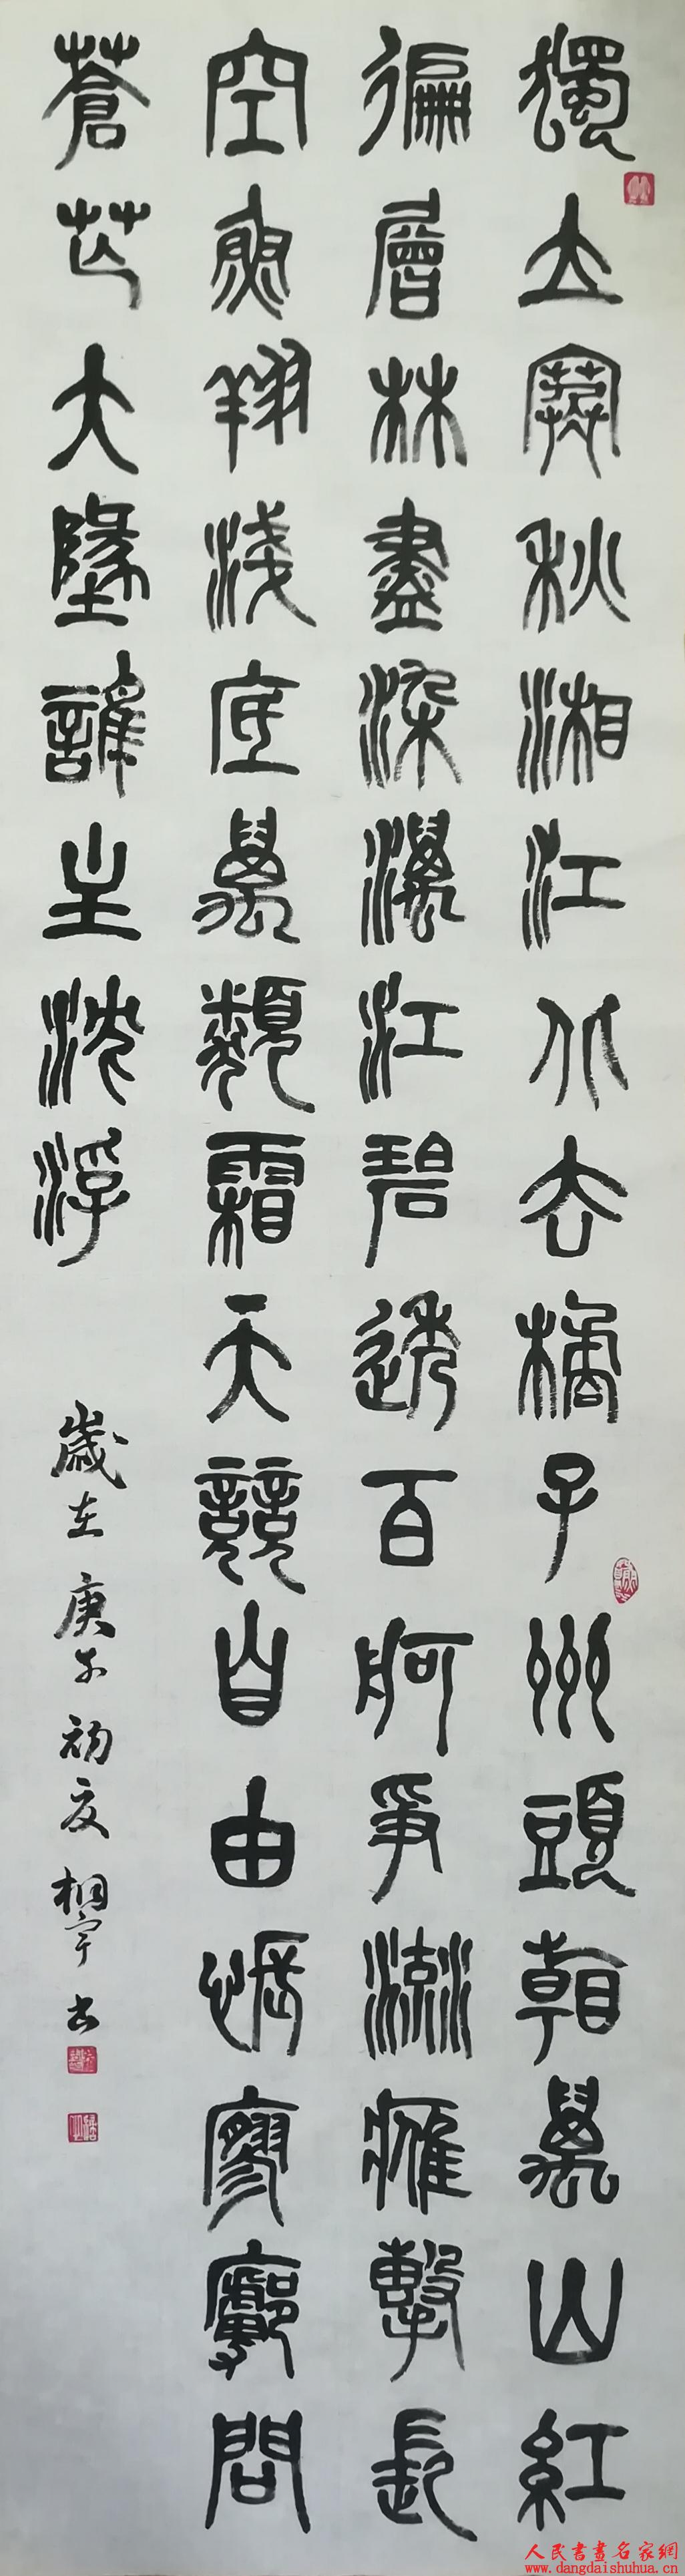 獨立寒秋湘江北去橘子州頭看萬山紅
徧層林盡染漫江碧透百舸爭流鷹擊長
空魚翔淺底萬類霜天競自由悵寥廓問
蒼茫大墬誰主沈浮
歲在庚子初夏桐宇书
人民書畫名家網
www.dangdaishuhua.cn